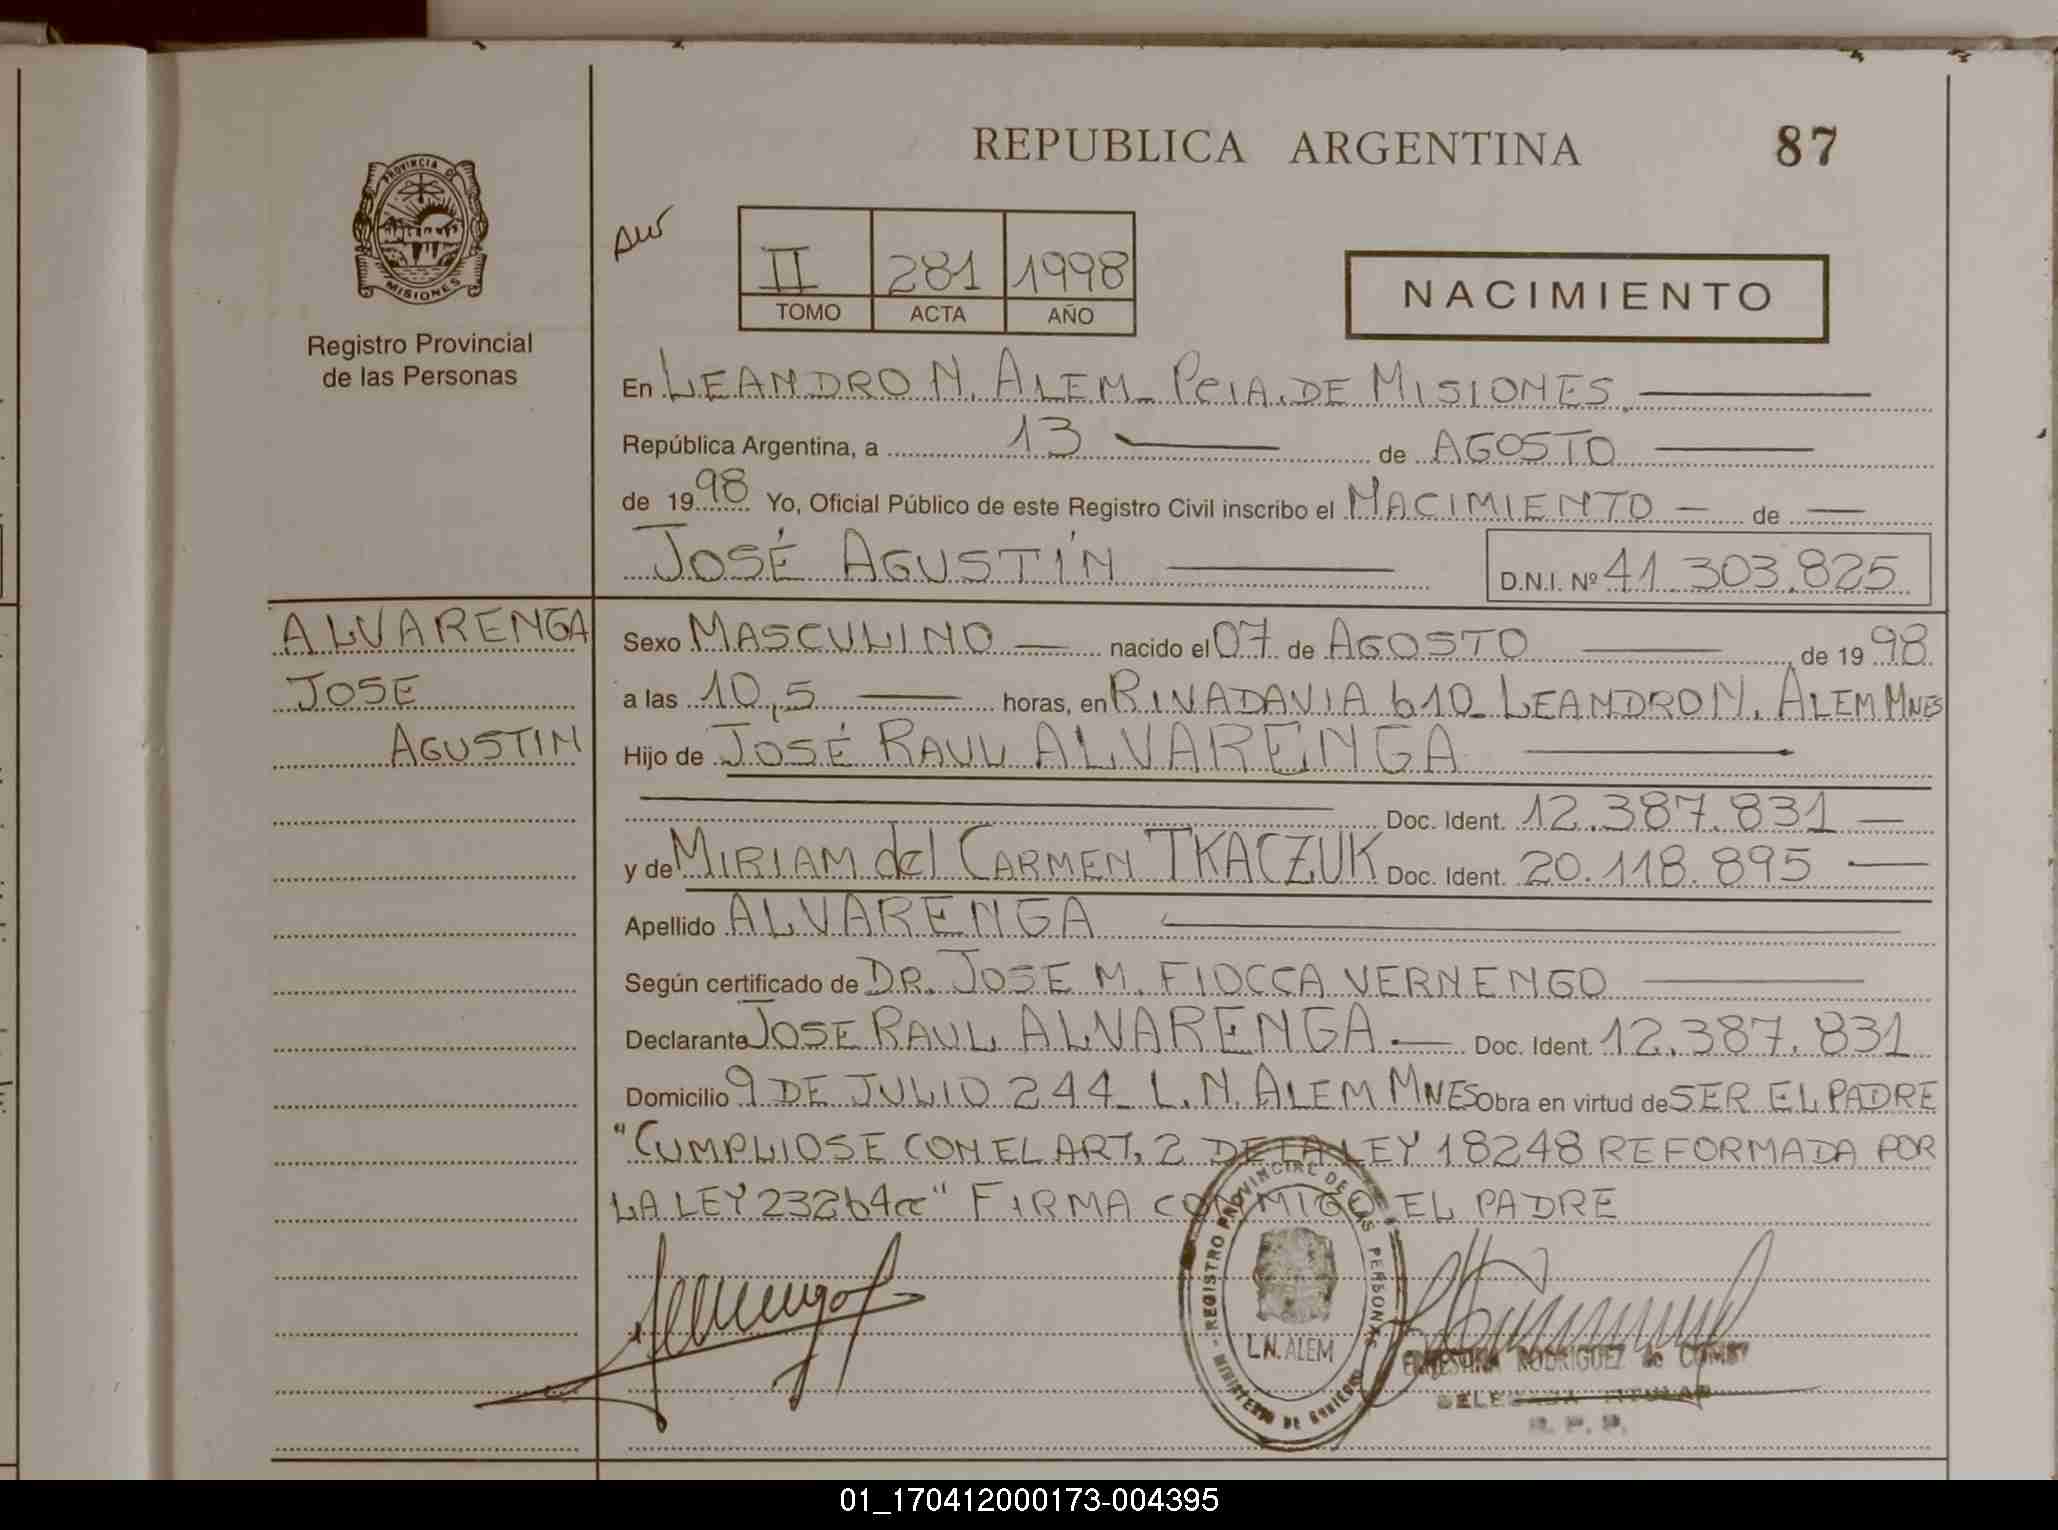 REPUBLICA ARGENTINA
87
PROVINCIA DE
MISIONES
Registro Provincial
de las Personas
II 281 1998
TOMO ACTA AÑO
NACIMIENTO
En LEANDRO N. ALEM_ PCIA. DE MISIONES.
República Argentina, a 13 de AGOSTO
de 1998 Yo, Oficial Público de este Registro Civil inscribo el NACIMIENTO de
JOSÉ AGUSTÍN
D.N.I. Nº 41.303.825
ALVARENGA
JOSE
AGUSTIN
Sexo MASCULINO nacido el 07 de AGOSTO de 1998
a las 10,5 horas, en RIVADAVIA 610_ LEANDRO N. ALEM MNES
Hijo de JOSÉ RAUL ALVARENGA
Doc. Ident. 12.387.831
y de MIRIAM del CARMEN TKACZUK Doc. Ident. 20.118.895
Apellido ALVARENGA
Según certificado de DR. JOSE M. FIOCCA VERNENGO
Declarante JOSE RAUL ALVARENGA Doc. Ident. 12.387.831
Domicilio 9 DE JULIO 244_ L.N. ALEM MNES Obra en virtud de SER EL PADRE
"CUMPLIOSE CON EL ART. 2 DE LA LEY 18248 REFORMADA POR
LA LEY 23264" FIRMA CONMIGO EL PADRE
REGISTRO PROVINCIAL DE LAS PERSONAS
L.N. ALEM
MINISTERIO DE GOBIERNO
ERNESTINA RODRIGUEZ de
DELEGADA TITULAR
R. P. P.
01_170412000173-004395